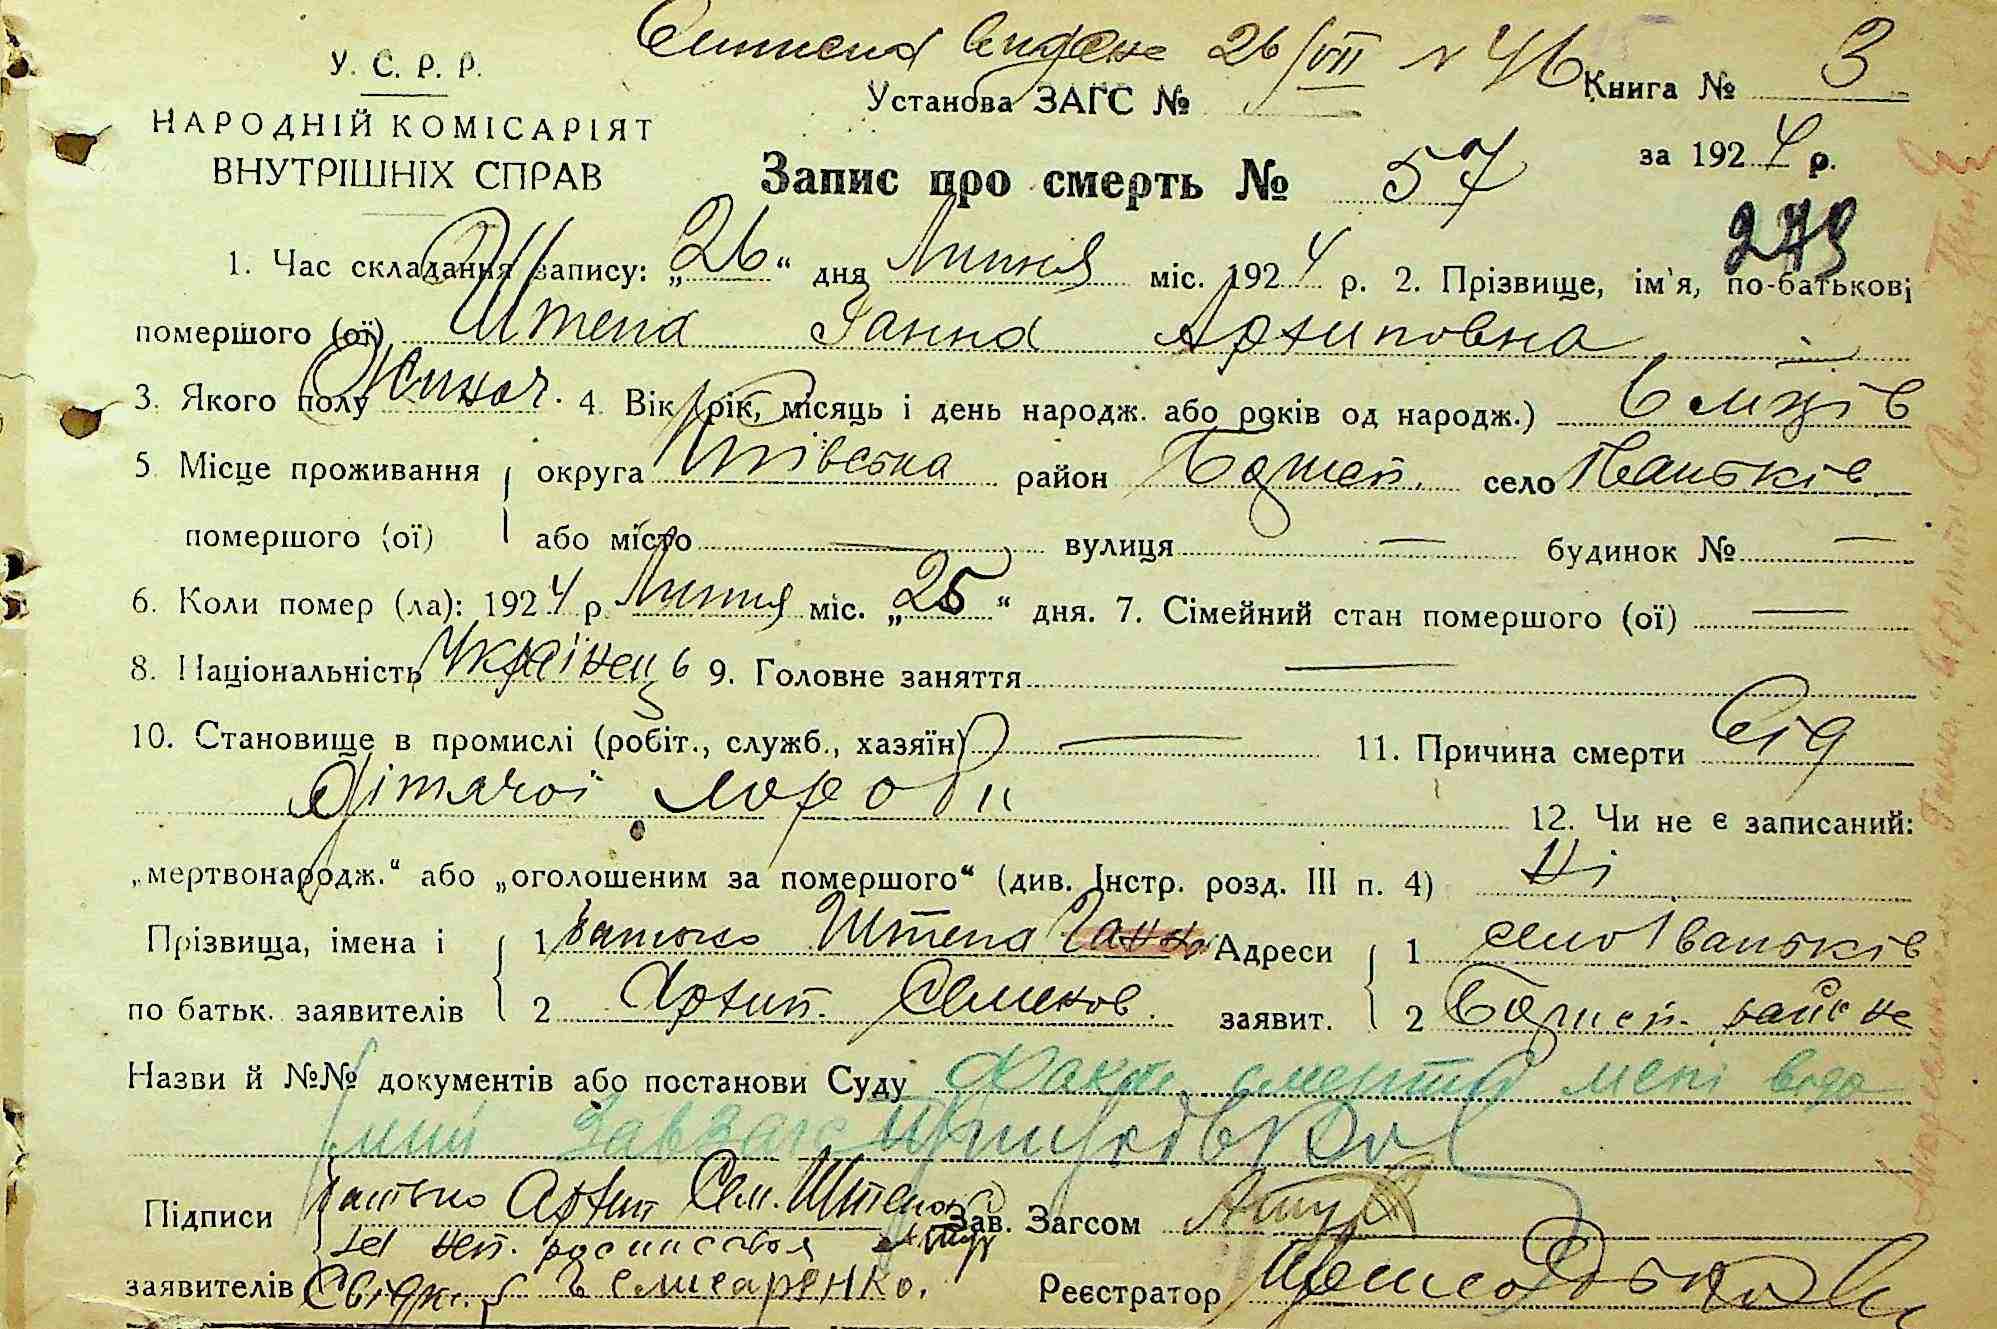 видана 26/VII № 46
У. С. Р. Р.
НАРОДНІЙ КОМІСАРІЯТ
ВНУТРІШНІХ СПРАВ
Установа ЗАГС №
Книга № 3
за 1924 р.
Запис про смерть № 57
279
1. Час складання запису: „26“ дня Липня міс. 1924 р. 2. Прізвище, ім'я, по-батькові
помершого (ої) Штепа Ганна Архиповна —
3. Якого полу Жиноч. 4. Вік (рік, місяць і день народж. або років од народж.) 6 місців
5. Місце проживання округа Київська район Бориш. село Іваньків
помершого (ої) або місто — вулиця — будинок № —
6. Коли помер (ла): 1924 р. Липня міс. „25“ дня. 7. Сімейний стан помершого (ої) —
8. Національність Українець 9. Головне заняття —
10. Становище в промислі (робіт., служб., хазяїн) — 11. Причина смерти Від
дітячої хороби
12. Чи не є записаний:
„мертвонародж.“ або „оголошеним за помершого“ (див. Інстр. розд. III п. 4) Ні
Прізвища, імена і 1 батько Штепа Ганна Адреси 1 село Іваньків
по батьк. заявителів 2 Архип. Семенов. заявит. 2 Бориш. району
Назви й №№ документів або постанови Суду Факт смерти мені відо
мий Завзагс
Підписи батько Архип Сем. Штепа Зав. Загсом
а неп. росписався
заявителів Свідк. Елисаренко. Реєстратор